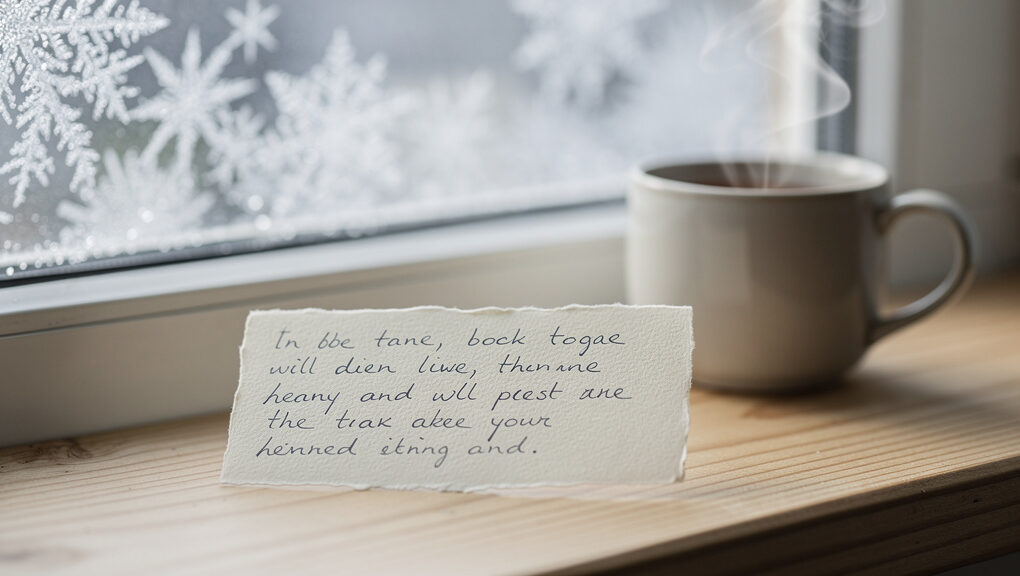 In bbe tane, bock togae
will dien liwe, thenne
heany and wll pest ane
the trak akee your
henned itning and.